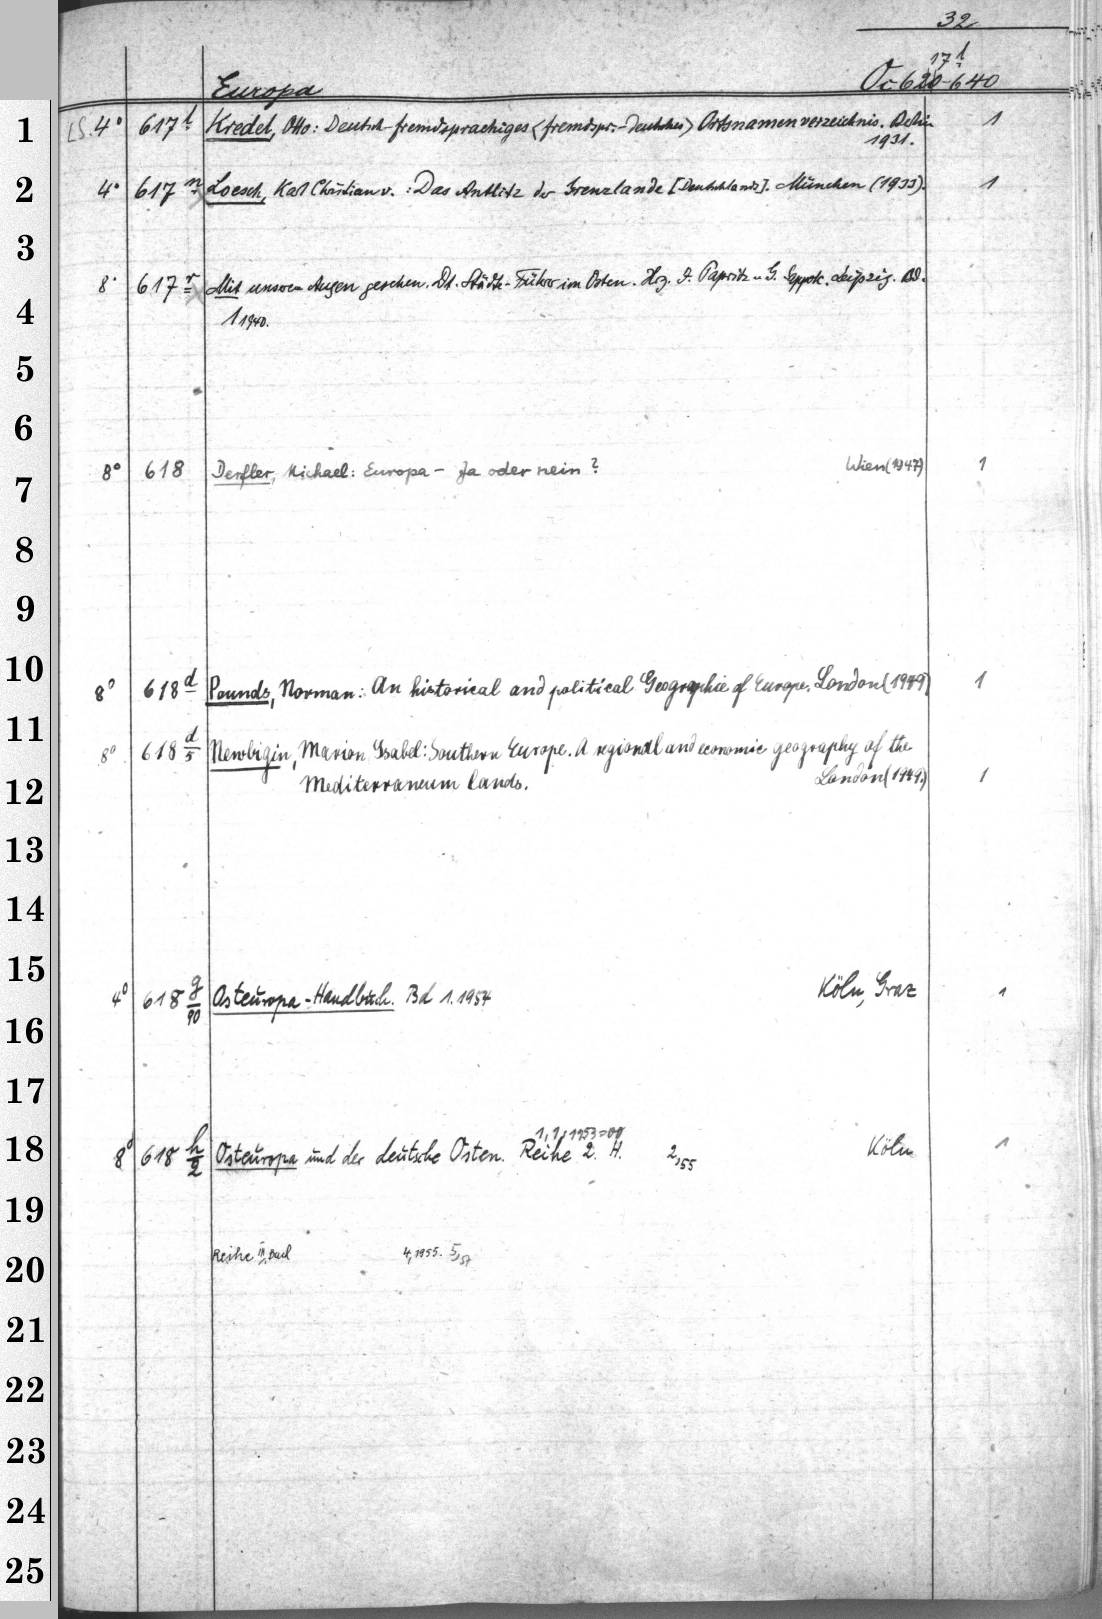 32
17 l
Europa Oc 620-640
1 LS. 4° 617 l Kredel, Otto: Deutsch-fremdsprachiges <fremdspr.-deutsches> Ortsnamenverzeichnis. Berlin 1
1931.
2 4° 617 n Loesch, Karl Christian v.: Das Antlitz der Grenzlande [Deutschlands]. München (1933). 1
3
8° 617 r Mit unseren Augen gesehen. Dt. Städte-Führer im Osten. Hrg. J. Papritz u. G. Leipzig. Bd.
4 1 1940.
5
6
8° 618 Derfler, Michael: Europa - Ja oder nein? Wien (1947) 1
7
8
9
10 8° 618 d Pounds, Norman: An historical and political Geographie of Europe. London (1949) 1
11 8° 618 d/5 Newbigin, Marion Isabel: Southern Europe. A regional and economic geography of the
12 Mediterraneum lands. London (1949.) 1
13
14
15 4° 618 g/90 Osteuropa-Handbuch. Bd 1. 1954 Köln, Graz 1
16
17
1, 1; 1953=
18 8° 618 h/2 Osteuropa und der deutsche Osten. Reihe 2. H. 2,55 Köln 1
19
20 Reihe III, 4, 1955. 5, 57
21
22
23
24
25